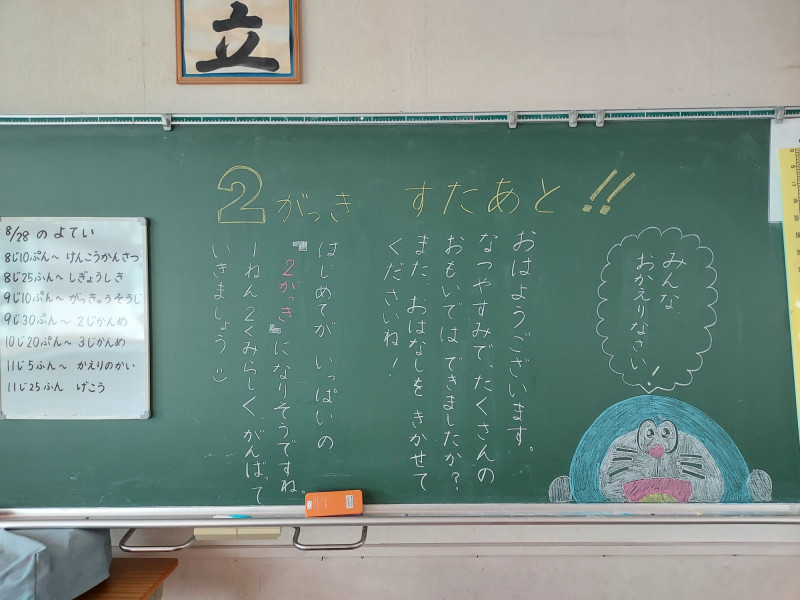 立
2がっき すたあと!!
みんな、
おかえりなさい!
おはようございます。
なつやすみで、たくさんの
おもいでは できましたか?
また、おはなしを きかせて
くださいね!
はじめてが いっぱいの
『2がっき』になりそうですね。
1ねん2くみらしく、がんばって
いきましょう
8/28 のよてい
8じ10ぷん〜 けんこうかんさつ
8じ25ふん〜 しぎょうしき
9じ10ぷん〜 がっきゅうそうじ
9じ30ぷん〜 2じかんめ
10じ20ぷん〜 3じかんめ
11じ5ふん〜 かえりのかい
11じ25ふん げこう